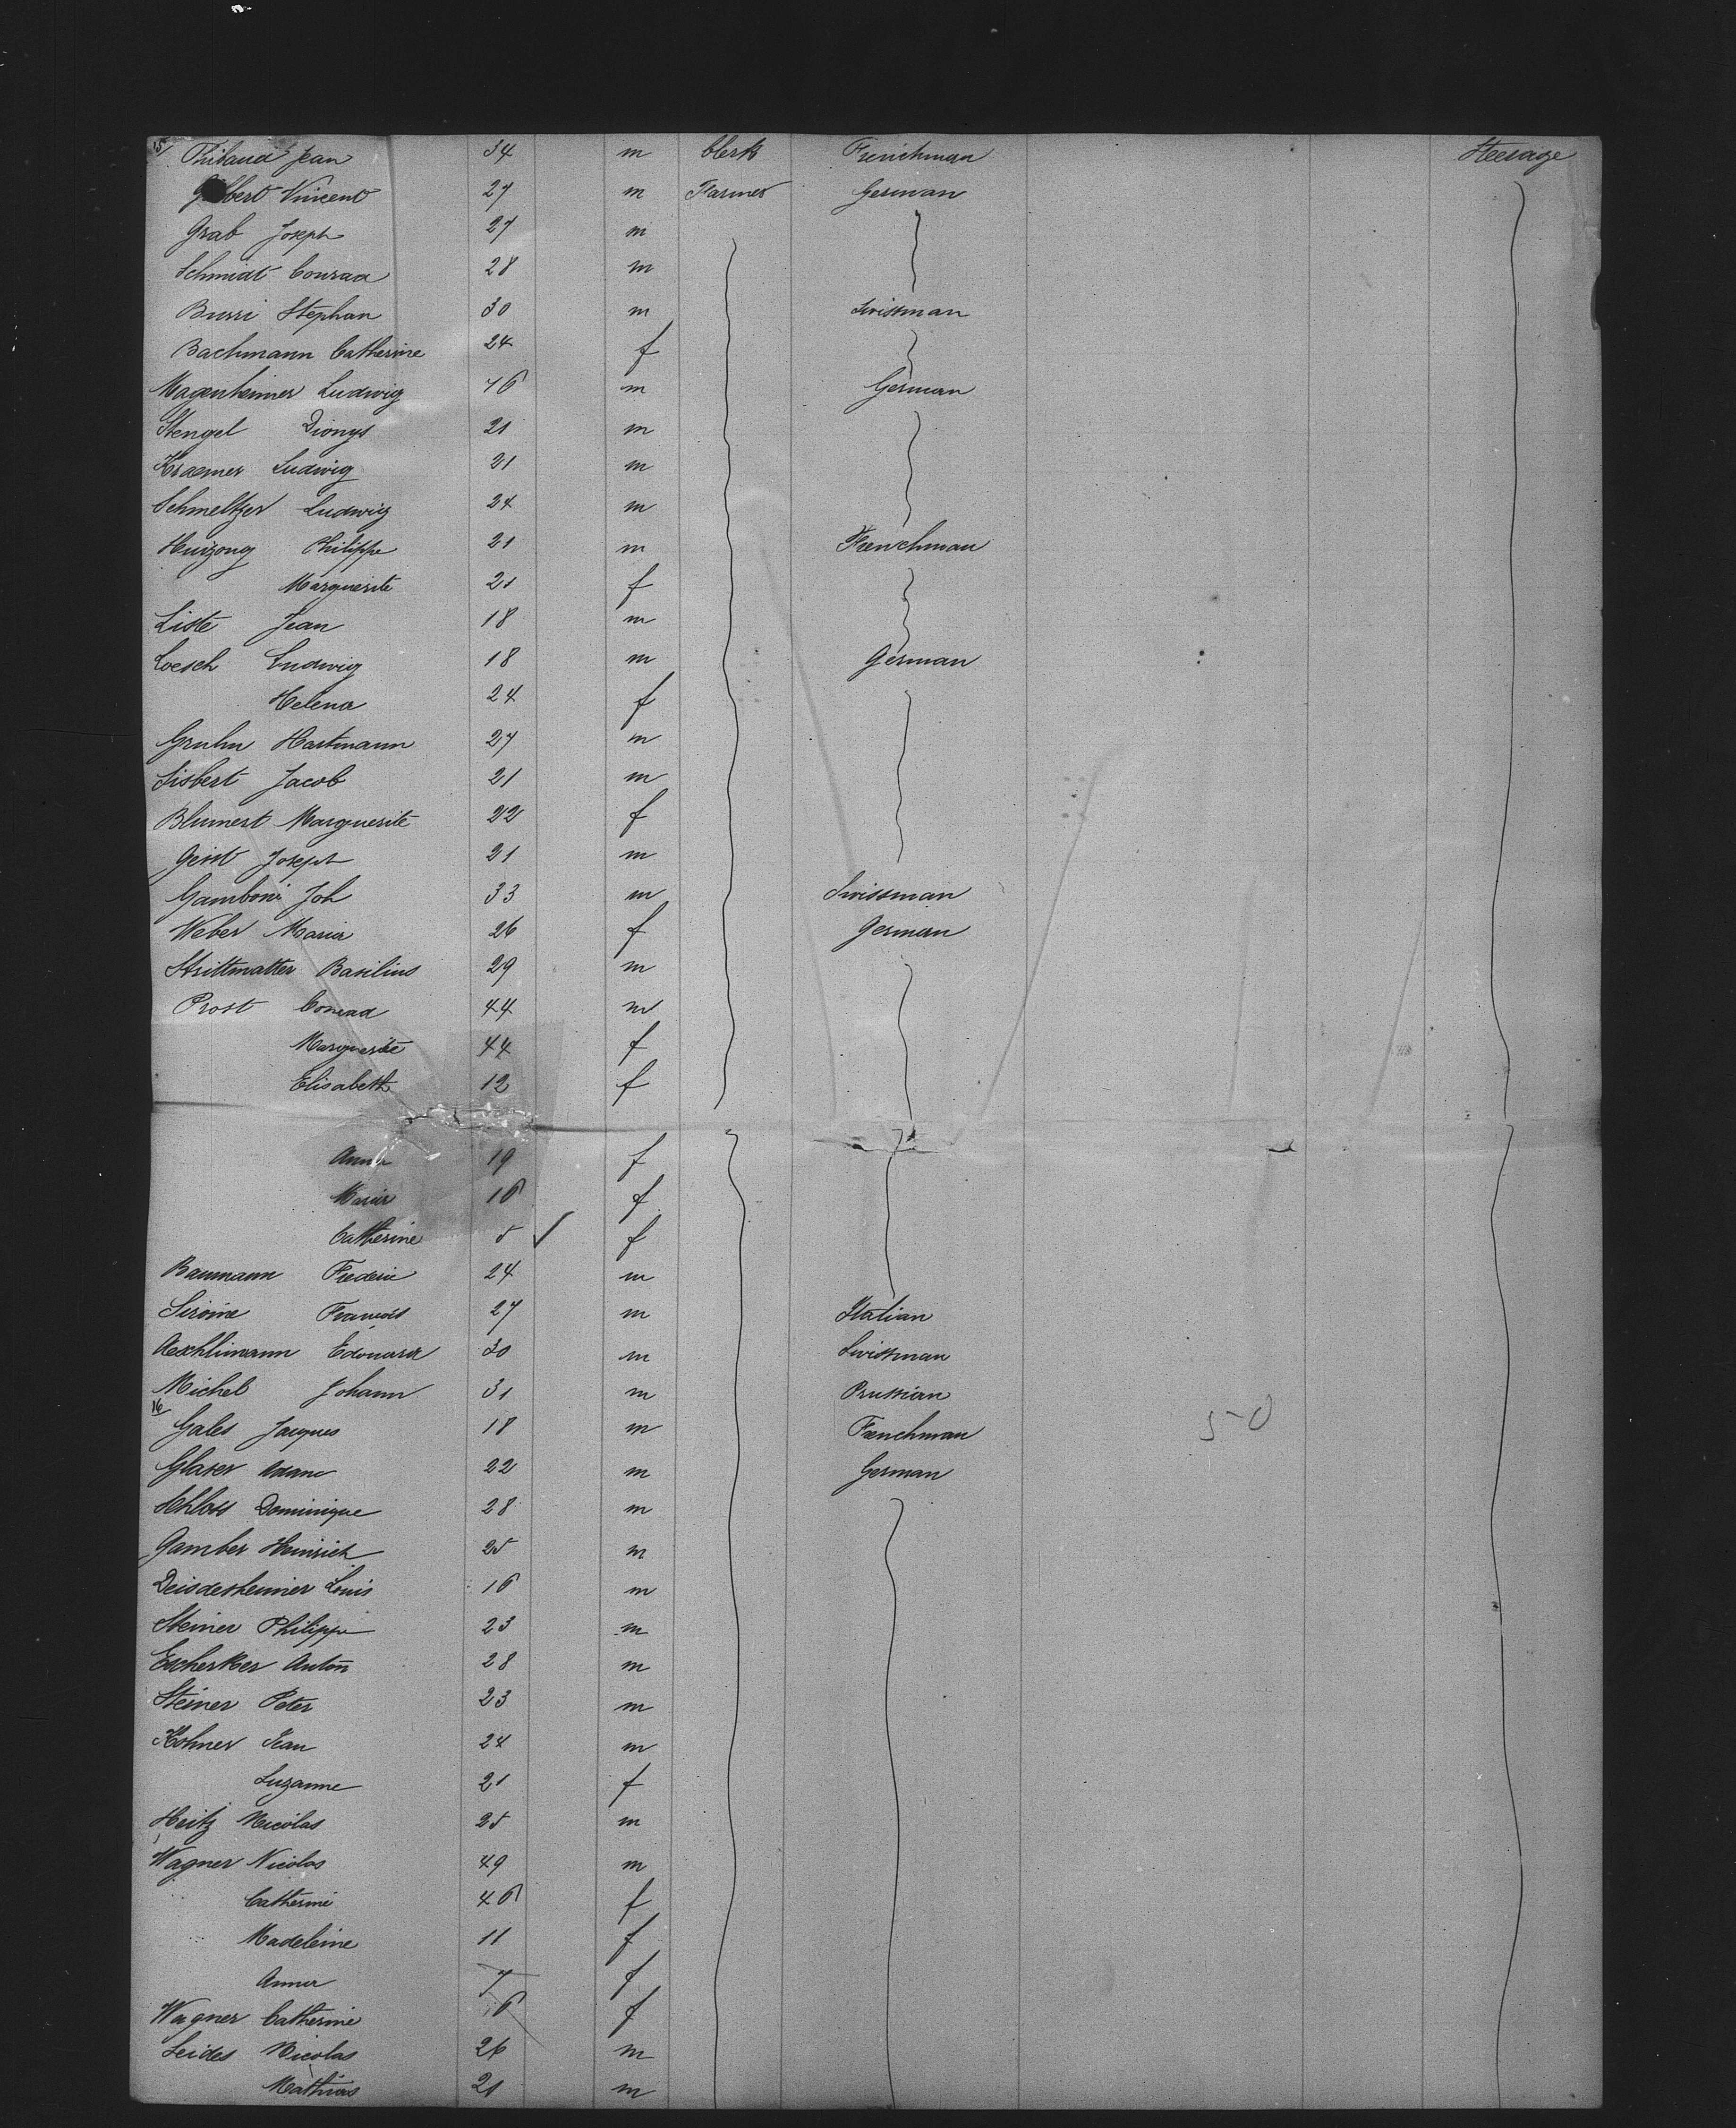 15
Thibaud Jean 34 m Clerk Frenchman Steerage
bert Vincent 27 m Farmer German
Grab Joseph 27 m
Schmidt Conrad 28 m
Burri Stephan 30 m Swissman
Bachmann Catherine 24 f
Magenheimer Ludwig 46 m German
Stengel Dionys 21 m
Kraemer Ludwig 21 m
Schmeltzer Ludwig 24 m
Huizong Philippe 21 m Frenchman
Marguerite 21 f
Liste Jean 18 m
Loesch Ludwig 18 m German
Helena 24 f
Gruhn Hartmann 27 m
Sisbert Jacob 21 m
Blumert Marguerite 22 f
Geist Joseph 21 m
Gamboni Joh 33 m Swissman
Weber Maria 26 f German
Strittmatter Basilius 29 m
Prost Conrad 44 m
Marguerite 44 f
Elisabeth 12 f
Anna 19 f
Maria 16 f
Catherine 5 ✓ f
Baumann Frederic 24 m
Siroine François 27 m Italian
Aeschlimann Edouard 30 m Swissman
Michel Johann 31 m Prussian
16
Gales Jacques 18 m Frenchman 50
Glaser Adam 22 m German
Schloss Dominique 28 m
Gamber Heinrich 25 m
Deisdesheimer Louis 16 m
Steiner Philippe 23 m
Escherker Anton 28 m
Steiner Peter 23 m
Kohner Jean 24 m
Suzanne 21 f
Heitz Nicolas 25 m
Wagner Nicolas 49 m
Catherine 46 f
Madeleine 11 f
Anna 7 f
Wagner Catherine 16 f
Leides Nicolas 26 m
Mathias 21 m